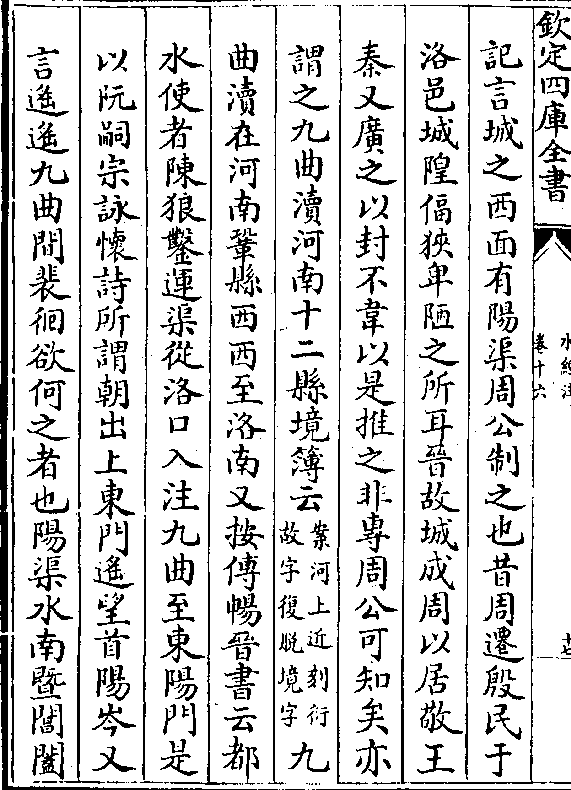 欽定四庫全書
水經注
卷十六
記言城之西面有陽渠周公制之也昔周遷殷民于
洛邑城隍偪狹卑陋之所耳晉故城成周以居敬王
秦又廣之以封不韋以是推之非專周公可知矣亦
謂之九曲瀆河南十二縣境簿云案河上近刻衍故字復脫境字九
曲瀆在河南鞏縣西西至洛南又按傅暢晉書云都
水使者陳狼鑿運渠從洛口入注九曲至東陽門是
以阮嗣宗詠懷詩所謂朝出上東門遙望首陽岑又
言遙遙九曲間裴徊欲何之者也陽渠水南暨閶闔